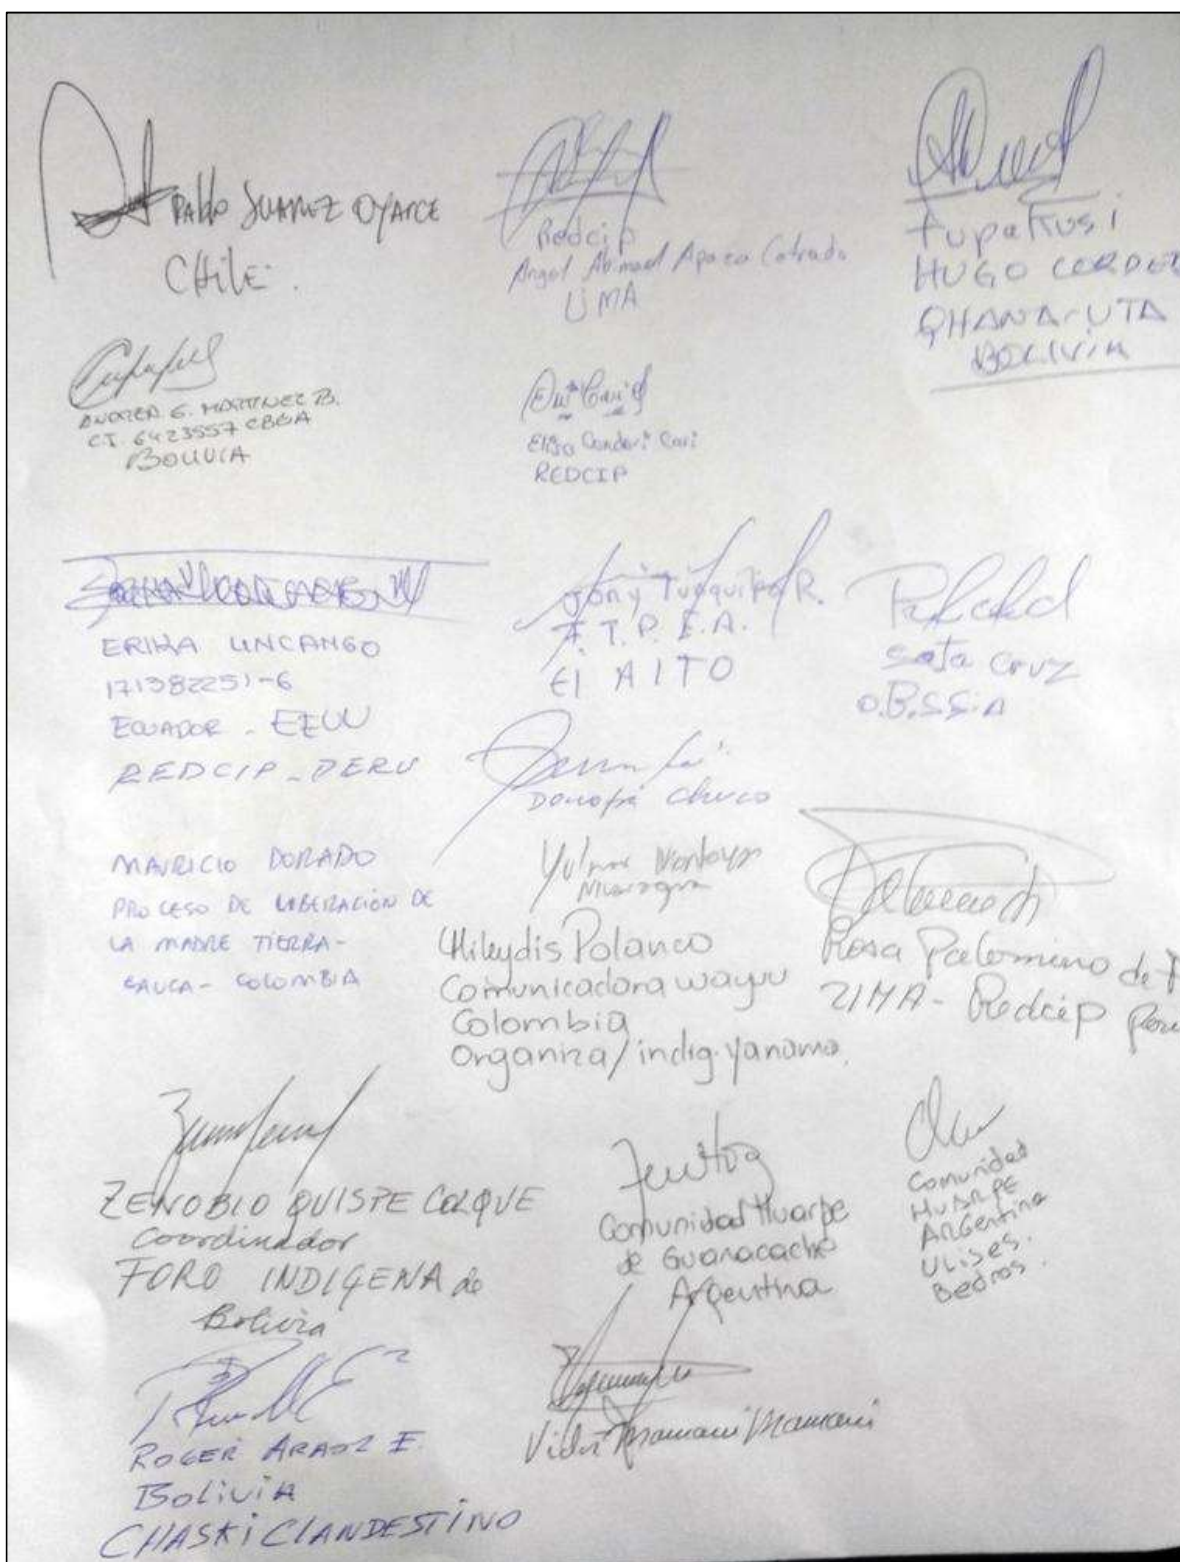 Pablo Suarez Oyarce
CHile.
Redcip
Angel Abimael Apaza Cotrado
UMA
tupakusi
HUGO
QHANA-UTA
BOLIVIA
E. MARTINEZ B.
C.I. 6423557 CBBA
BOLIVIA
Elisa Condori Cari
REDCIP
ERIKA UNCANGO
171382251-6
ECUADOR - EEUU
REDCIP - PERU
Jony Tuquipa R.
F.T.P.E.A.
El AlTO
sata cruz
O.B.S.S.A
chuco
MAURICIO DORADO
PROCESO DE LIBERACIÓN DE
LA MADRE TIERRA -
CAUCA - COLOMBIA
Montoya
Nicaragua
Mileydis Polanco
Comunicadora wayuu
Colombia
Organiza/indig. Yanama.
Rosa Palomino de
UMA - Redcip Perú
ZENOBIO QUISPE COLQUE
Coordinador
FORO INDIGENA de
Bolivia
Comunidad Huarpe
de Guanacache
Argentina
Comunidad
HUARPE
ARGentina
Ulises.
Bedros.
ROGER ARAOZ E.
BoliviA
CHASKiCLANDESTINO
Mamani Mamani